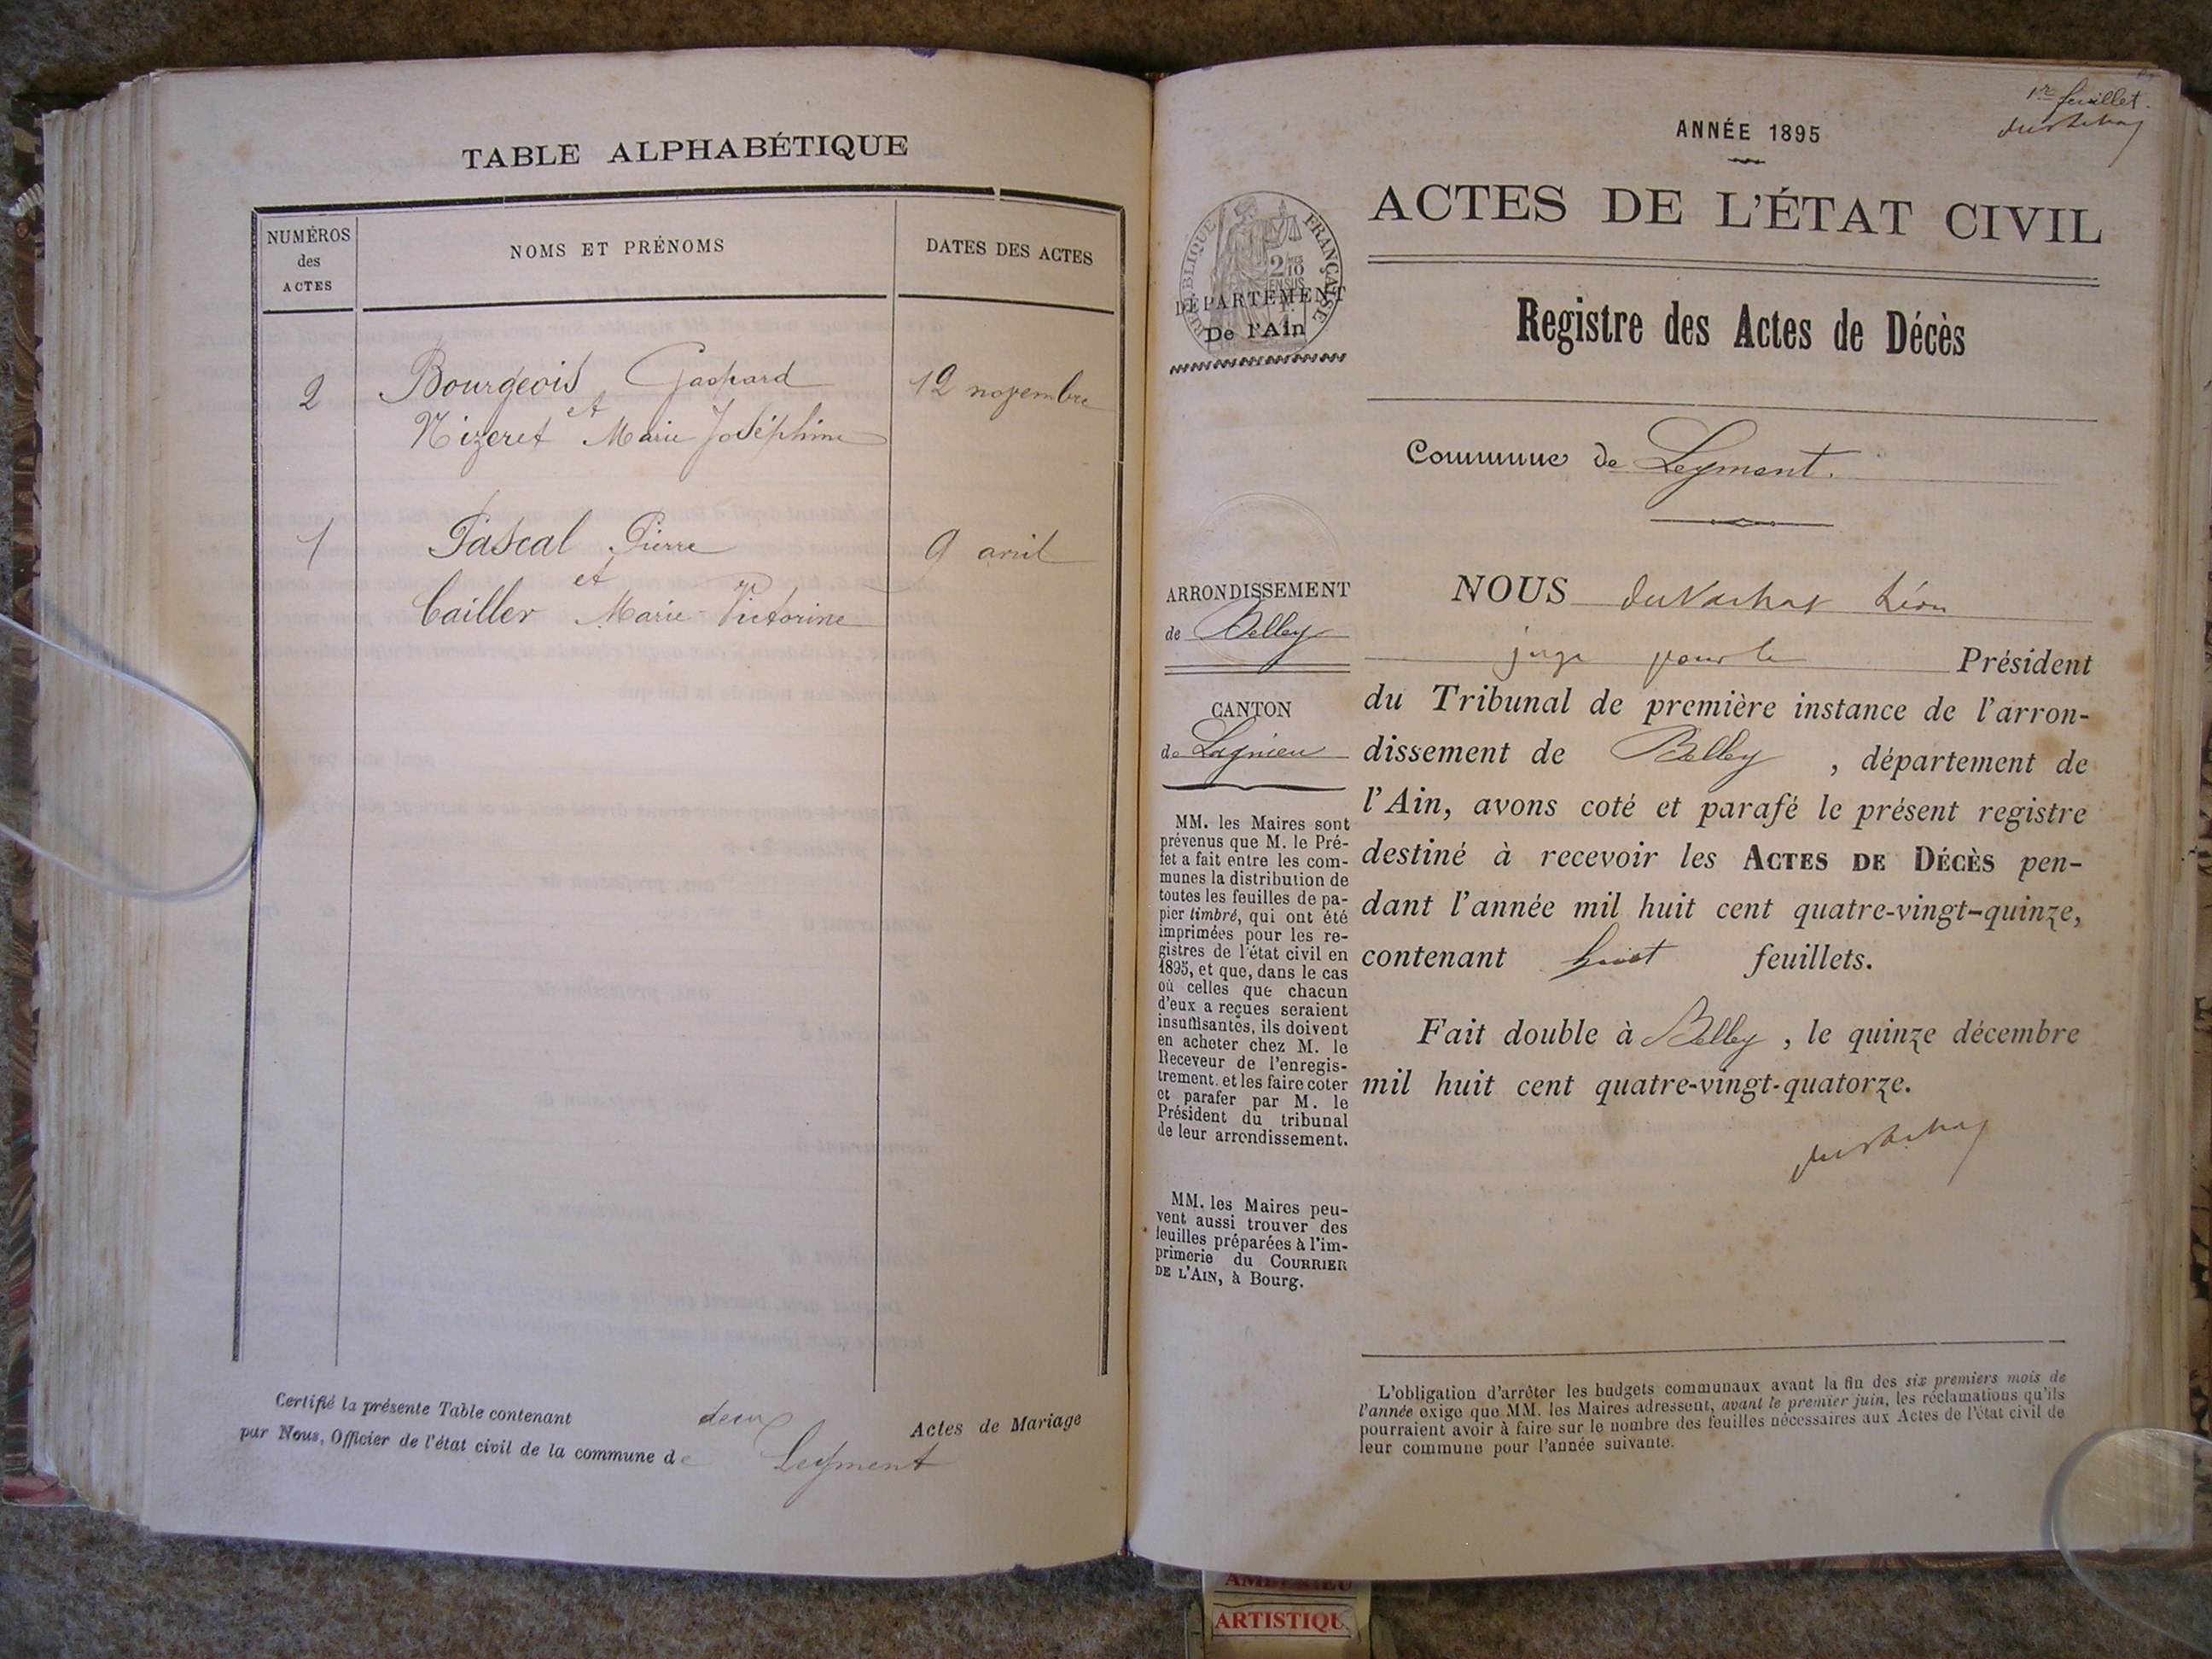 TABLE ALPHABÉTIQUE
NUMÉROS
des
ACTES
NOMS ET PRÉNOMS
DATES DES ACTES
2
Bourgeois Gaspard
12 novembre
et
Nizeret Marie Joséphine
1
Pascal Pierre
9 avril
et
Cailler Marie-Victorine
Certifié la présente Table contenant deux Actes de Mariage
par Nous, Officier de l'état civil de la commune de Leyment
1er feuillet.
ANNÉE 1895
ACTES DE L'ÉTAT CIVIL
RÉPUBLIQUE FRANÇAISE
DÉPARTEMENT
De l'Ain
Registre des Actes de Décès
Commune de Leyment.
ARRONDISSEMENT
de Belley
CANTON
de Lagnieu
MM. les Maires sont
prévenus que M. le Pré-
fet a fait entre les com-
munes la distribution de
toutes les feuilles de pa-
pier timbré, qui ont été
imprimées pour les re-
gistres de l'état civil en
1895, et que, dans le cas
où celles que chacun
d'eux a reçues seraient
insuffisantes, ils doivent
en acheter chez M. le
Receveur de l'enregis-
trement. et les faire coter
et parafer par M. le
Président du tribunal
de leur arrondissement.
MM. les Maires peu-
vent aussi trouver des
feuilles préparées à l'im-
primerie du COURRIER
DE L'AIN, à Bourg.
NOUS Léon
juge pour le Président
du Tribunal de première instance de l'arron-
dissement de Belley , département de
l'Ain, avons coté et parafé le présent registre
destiné à recevoir les ACTES DE DÉCÈS pen-
dant l'année mil huit cent quatre-vingt-quinze,
contenant huit feuillets.
Fait double à Belley , le quinze décembre
mil huit cent quatre-vingt-quatorze.
L'obligation d'arrêter les budgets communaux avant la fin des six premiers mois de
l'année exige que MM. les Maires adressent, avant le premier juin, les réclamations qu'ils
pourraient avoir à faire sur le nombre des feuilles nécessaires aux Actes de l'état civil de
leur commune pour l'année suivante.
ARTISTIQU